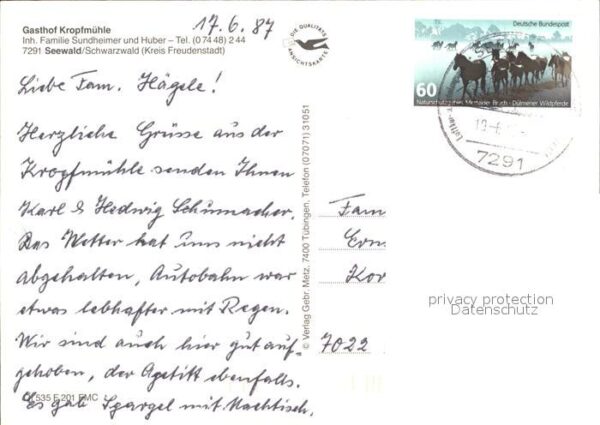 Gasthof Kropfmühle
Inh. Familie Sundheimer und Huber – Tel. (0 74 48) 2 44
7291 Seewald/Schwarzwald (Kreis Freudenstadt)
17.6.87
DIE QUALITÄTS
ANSICHTSKARTE
Deutsche Bundespost
60
Naturschutzgebiet Merfelder Bruch · Dülmener Wildpferde
7291
Liebe Fam. Hägele!
Herzliche Grüsse aus der
Kropfmühle senden Ihnen
Karl & Hedwig Schumacher.
Das Wetter hat uns nicht
abgehalten, Autobahn war
etwas lebhafter mit Regen.
Wir sind auch hier gut auf-
gehoben, der Apetitt ebenfalls.
Es gab Spargel mit Nachtisch.
535 E 201 EMC
© Verlag Gebr. Metz, 7400 Tübingen, Telefon (07071) 31051
Fam
Kor
7022
privacy protection
Datenschutz